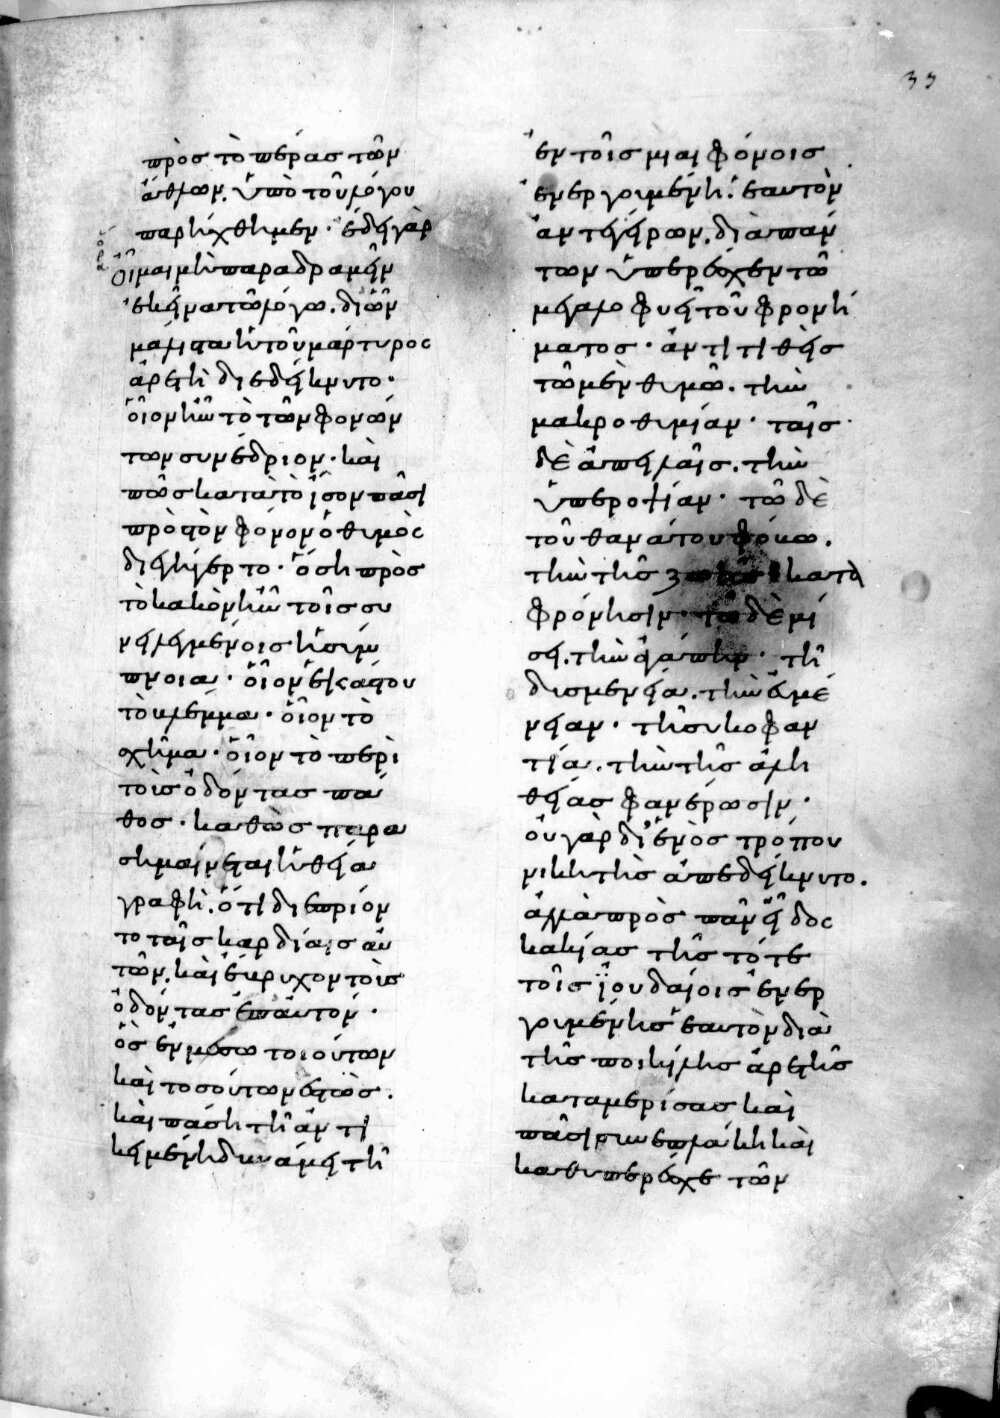 33
πρὸς τὸ πέρας τῶν
ἄθλων. ὑπὸ τοῦ λόγου
παρήχθημεν · ἔδει γὰρ
οἶμαι μὴ παραδραμεῖν
ἐκεῖνα τῶ λόγω. δι ὧν
μάλιστα ἡ τοῦ μάρτυρος
ἀρετὴ διεδείκνυτο ·
οἷον ἦν τὸ τῶν φονών
των συνέδριον · καὶ
πῶς κατὰ τὸ ἴσον πᾶσι
πρὸς τὸν φόνον ὁ θυμὸς
διεγήγερτο · ὅση πρὸς
τὸ κακὸν ἦν τοῖς συ
νειλεγμένοις ἡ σύμ
πνοια · οἷον ἑκάστου
τὸ βλέμμα · οἷον τὸ
σχῆμα · οἷον τὸ περὶ
τοὺς ὀδόντας πά
θος · καθὼς παρα
σημαίνεται ἡ θεία
γραφὴ. ὅτι διεπρίον
το ταῖς καρδίαις αὐ
τῶν. καὶ ἔβρυχον τοὺς
ὀδόντας ἐπ αὐτόν ·
ὃς ἐν μέσω τοιούτων
καὶ τοσούτων ἑστὼς.
καὶ πάση τῆ ἀντι
κειμένη δυνάμει τῆ
ἐν τοῖς μιαιφόνοις
ἐνεργουμένη. ἑαυτὸν
ἀντεγείρων. διὰ πάν
των ὑπερέσχεν τῶ
μεγαλοφυεῖ τοῦ φρονή
ματος · ἀντιτιθεὶς
τῶ μὲν θυμῶ. τὴν
μακροθυμίαν · ταῖς
δὲ ἀπειλαῖς. τὴν
ὑπεροψίαν · τῶ δὲ
τοῦ θανάτου φόβω.
τὴν τῆς ζωῆς κατα
φρόνησιν · τῶ δὲ μί
σει. τὴν ἀγάπην · τῆ
δυσμενεία. τὴν εὐμέ
νειαν · τῆ συκοφαν
τία. τὴν τῆς ἀλη
θείας φανέρωσιν ·
οὐ γὰρ δι ἑνὸς τρόπου
νικητὴς ἀπεδείκνυτο.
ἀλλὰ πρὸς πᾶν εἶδος
κακίας τῆς τότε
τοῖς ἰουδαίοις ἐνερ
γουμένης ἑαυτὸν διὰ
τῆς ποικίλης ἀρετῆς
καταμερίσας καὶ
πᾶσι συνεπλάκη καὶ
καθυπερέσχε τῶν